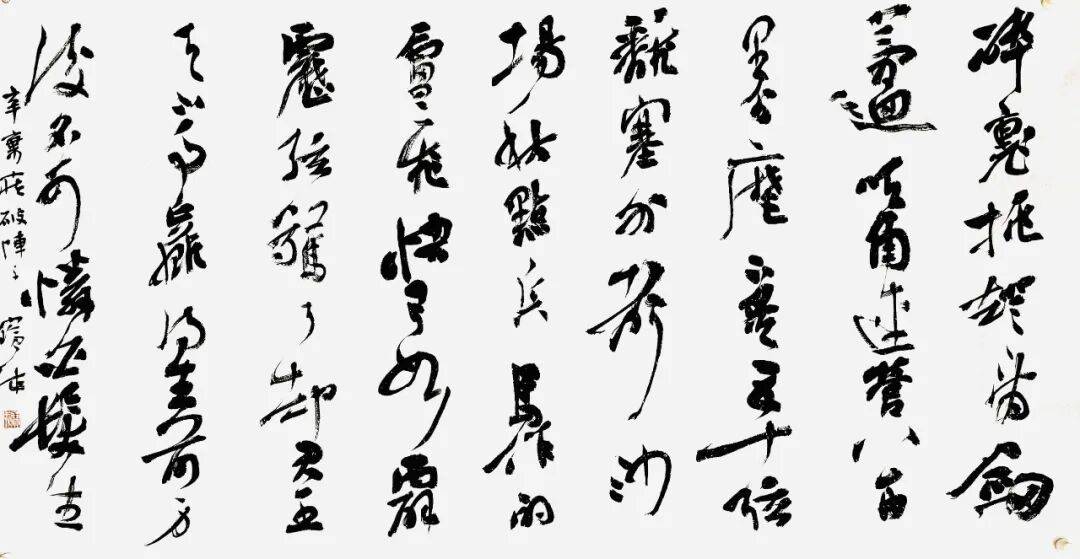 醉裏挑燈看劍
夢迴吹角連營八百
里分麾下炙五十弦
翻塞外聲沙
場秋點兵馬作的
盧飛快弓如霹
靂弦驚了却君王
天下事贏得生前身
後名可憐白髮生
辛棄疾破陣子